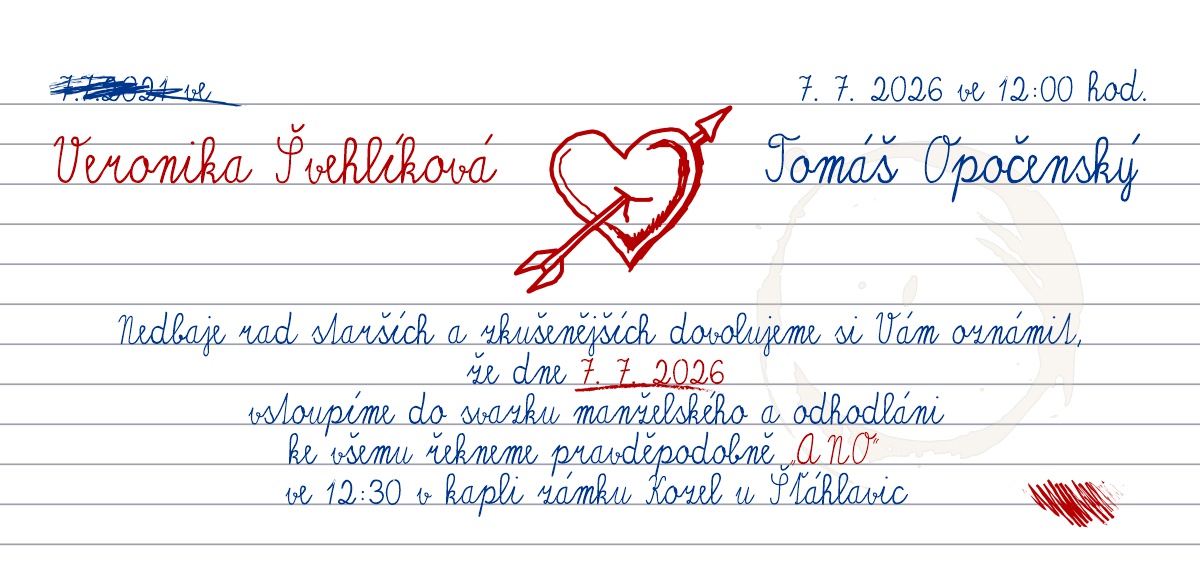 7.7.2021 ve
7. 7. 2026 ve 12:00 hod.
Veronika Švehlíková
Tomáš Opočenský
Nedbaje rad starších a zkušenějších dovolujeme si Vám oznámit,
že dne 7. 7. 2026
vstoupíme do svazku manželského a odhodláni
ke všemu řekneme pravděpodobně „ANO“
ve 12:30 v kapli zámku Kozel u Šťáhlavic